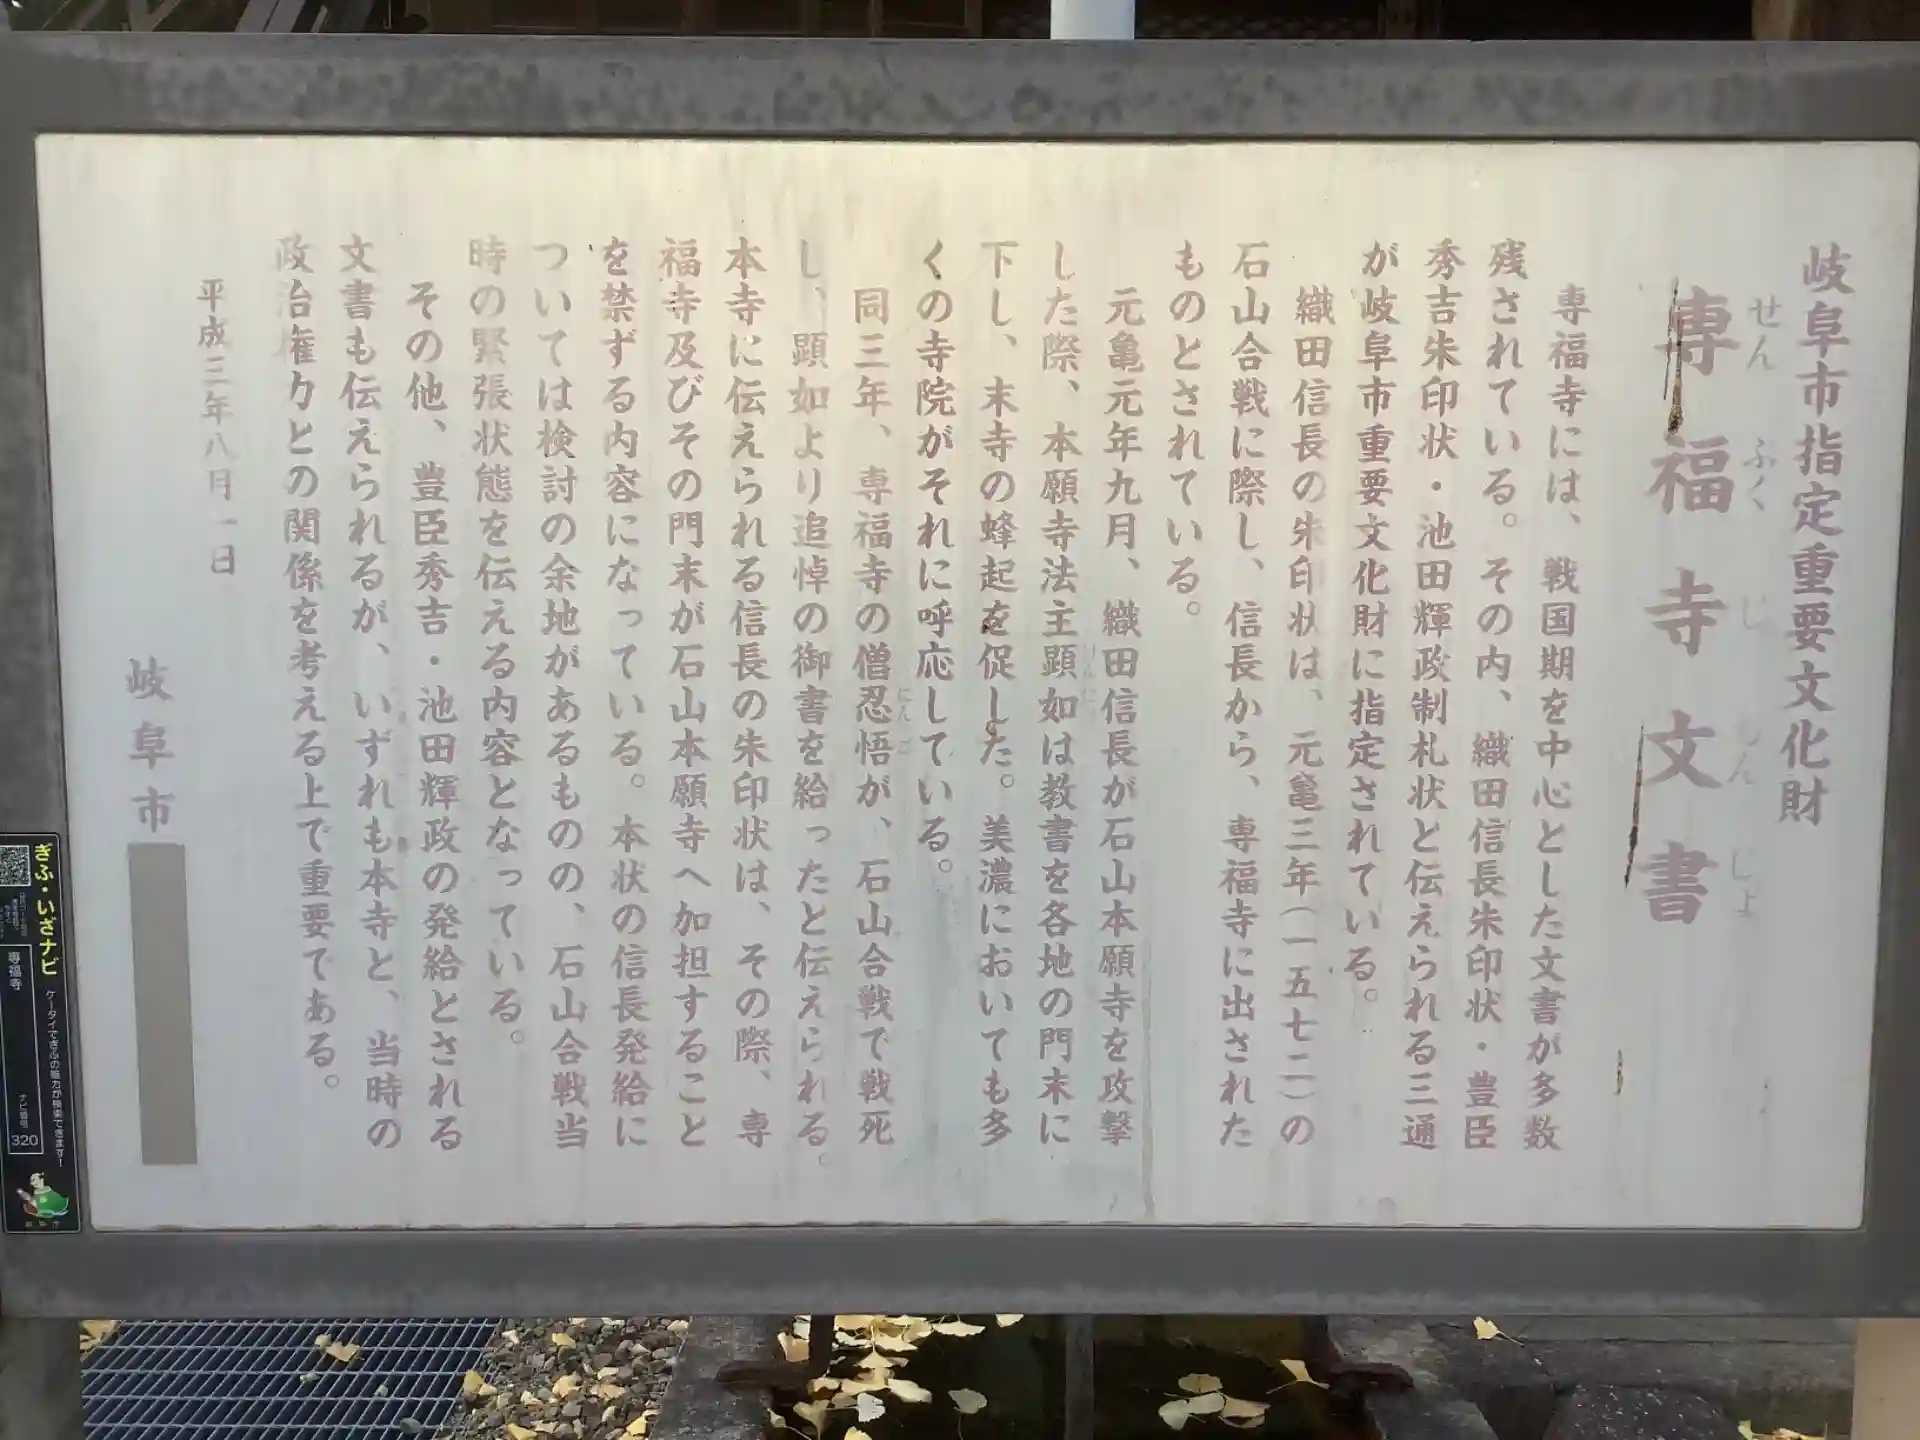 岐阜市指定重要文化財
専福寺文書
せんふくじもんじょ
専福寺には、戦国期を中心とした文書が多数
残されている。その内、織田信長朱印状・豊臣
秀吉朱印状・池田輝政制札状と伝えられる三通
が岐阜市重要文化財に指定されている。
織田信長の朱印状は、元亀三年(一五七二)の
石山合戦に際し、信長から、専福寺に出された
ものとされている。
元亀元年九月、織田信長が石山本願寺を攻撃
した際、本願寺法主顕如は教書を各地の門末に
けんにょ
下し、末寺の蜂起を促した。美濃においても多
くの寺院がそれに呼応している。
同三年、専福寺の僧忍悟が、石山合戦で戦死
にんご
し、顕如より追悼の御書を給ったと伝えられる。
本寺に伝えられる信長の朱印状は、その際、専
福寺及びその門末が石山本願寺へ加担すること
を禁ずる内容になっている。本状の信長発給に
ついては検討の余地があるものの、石山合戦当
時の緊張状態を伝える内容となっている。
その他、豊臣秀吉・池田輝政の発給とされる
文書も伝えられるが、いずれも本寺と、当時の
政治権力との関係を考える上で重要である。
平成三年八月一日
岐阜市
ぎふ・いざナビ
ケータイでぎふの魅力が検索できます!
専福寺
ナビ番号
320
岐阜市